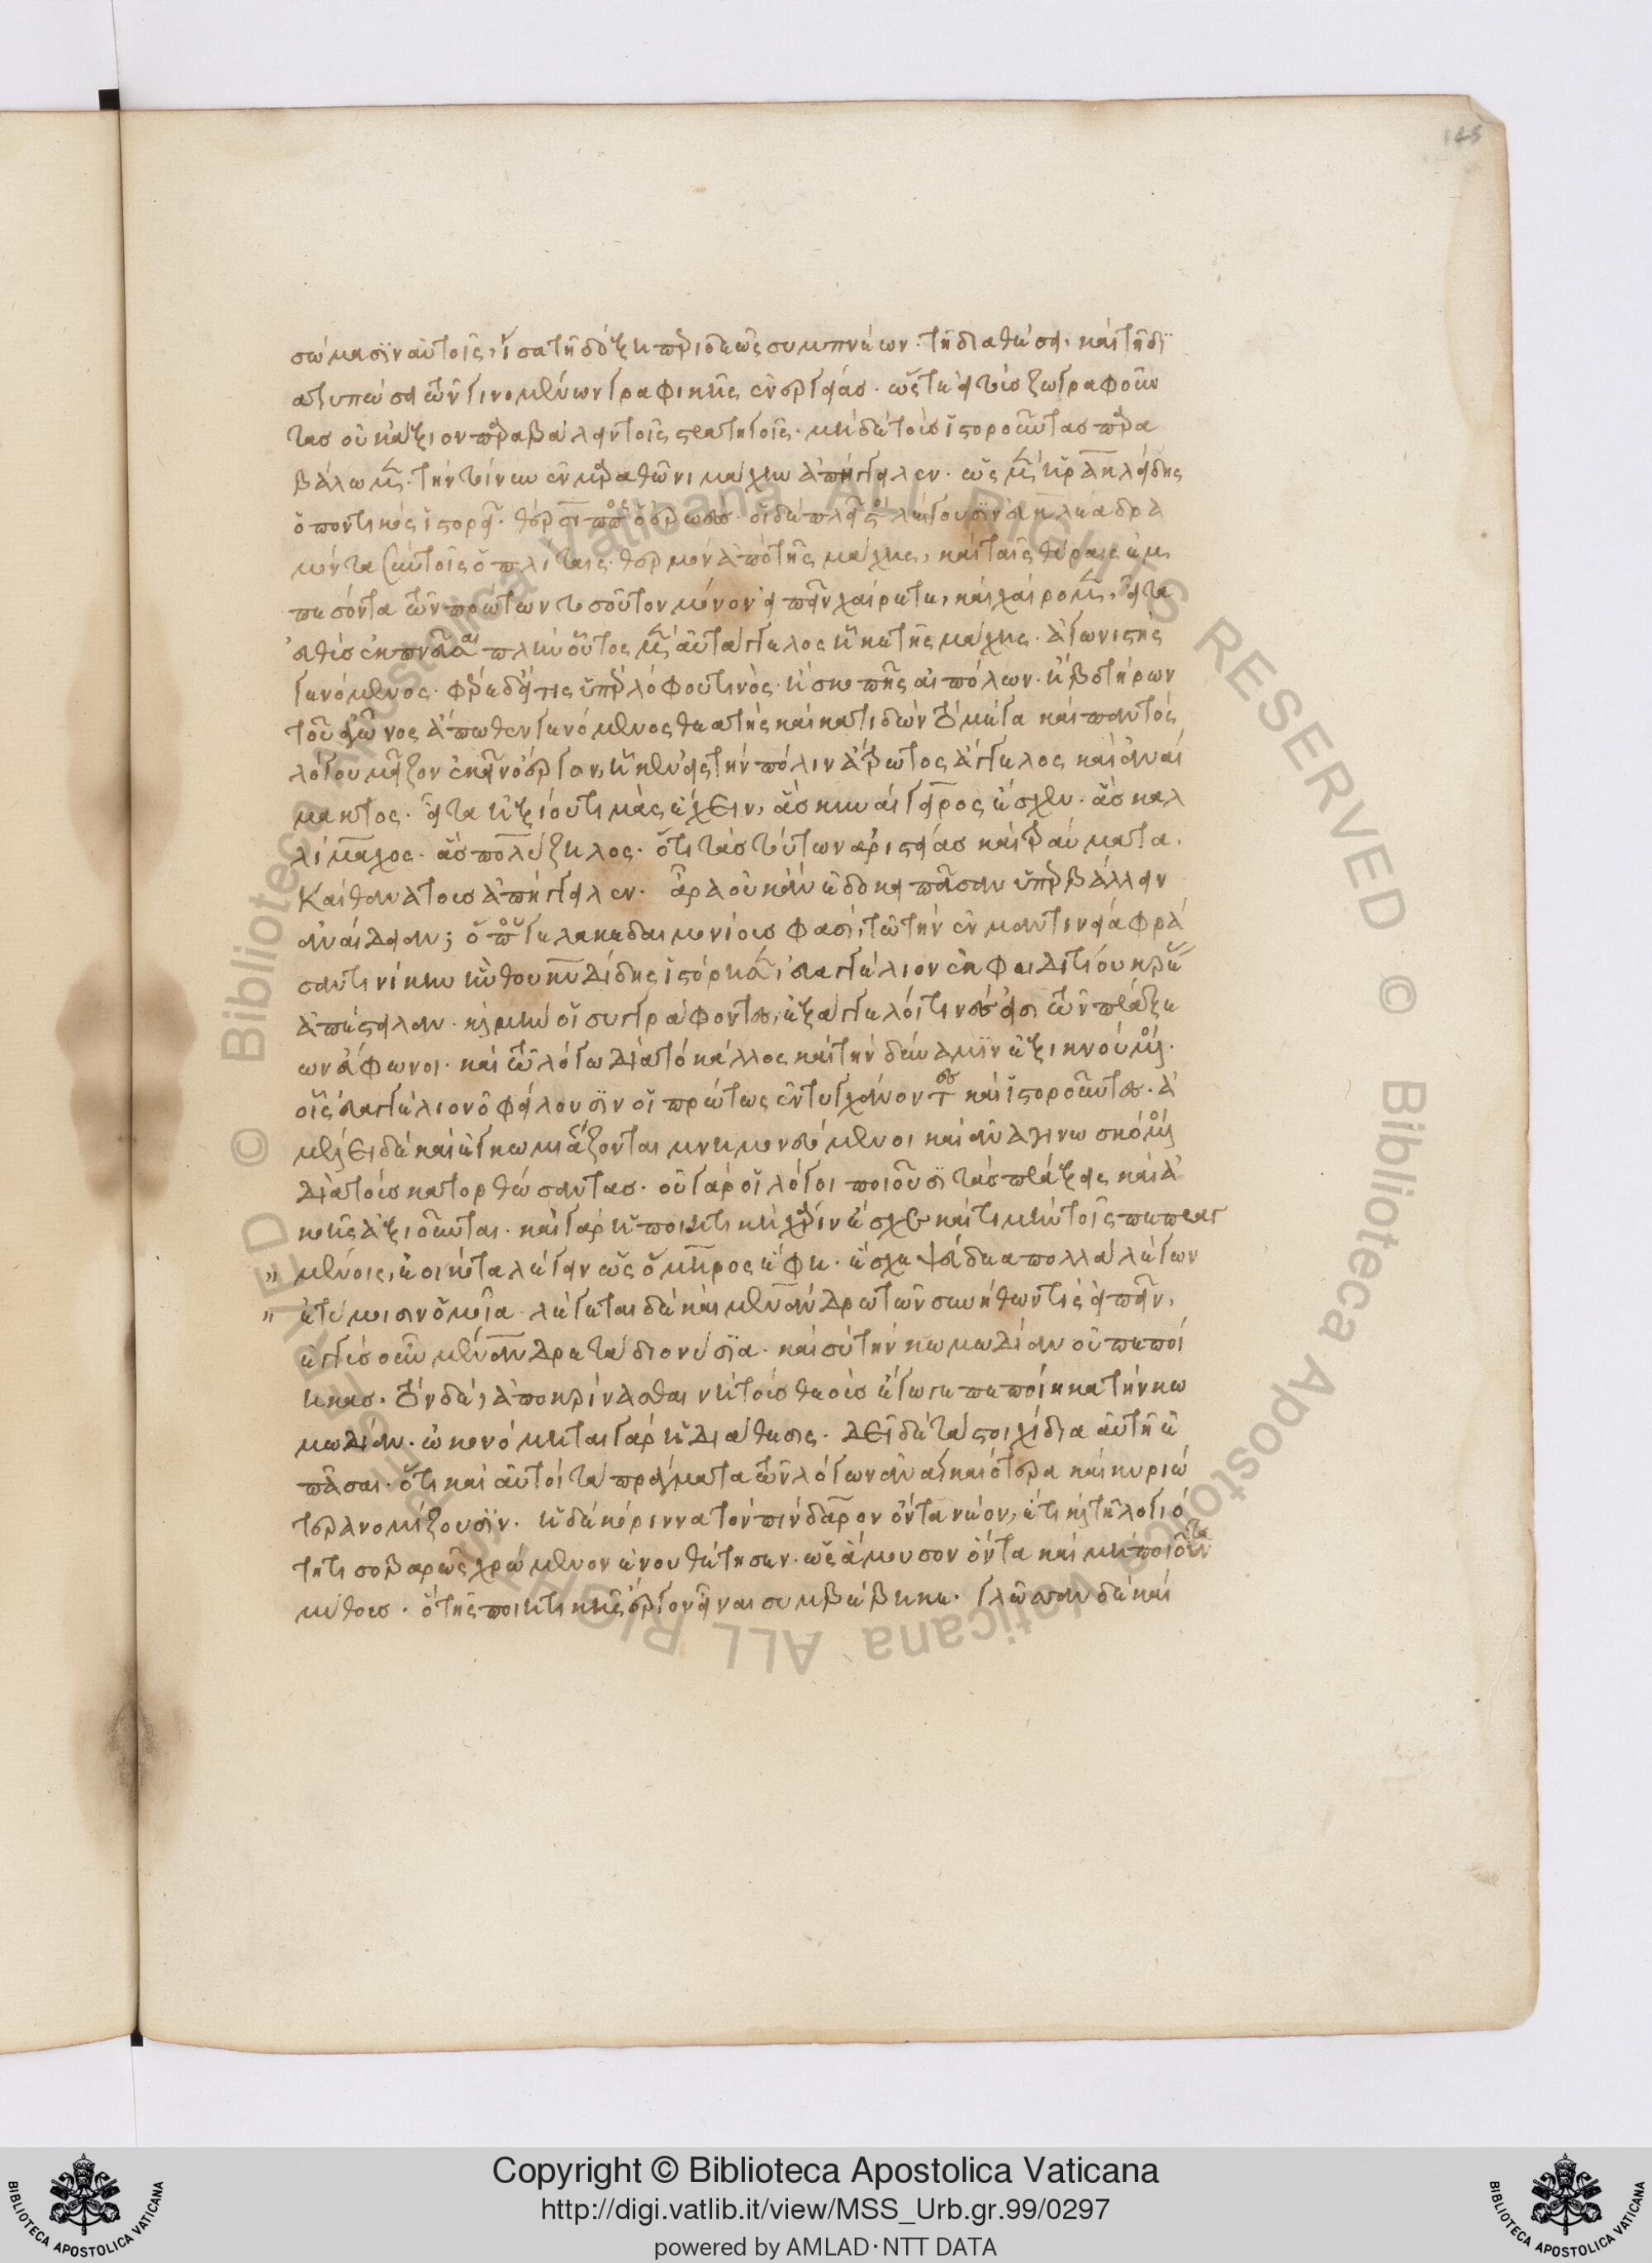 145
σώμασιν αὐτοῖς, ἴσα τῇ δόξῃ περιδεῶς συμπνέων. τῇ διαθέσει καὶ τῇ δι
ατυπώσει τῶν γινομένων γραφικῆς ἐνεργείας. ὥστε εἰ τοὺς ζωγραφοῦν
τας οὐκ ἄξιον παραβάλλειν τοῖς στρατηγοῖς. μηδὲ τοὺς ἱστοροῦντας παρα
βάλωμεν. τὴν τοίνυν ἐν μαραθῶνι μάχην ἀπήγγειλεν. ὡς μὲν ἡρακλείδης
ὁ ποντικὸς ἱστορεῖ.
μέντα σὺν τοῖς ὅπλοις θερμὸν ἀπὸ τῆς μάχης, καὶ ταῖς θύραις ἐμ
πεσόντα τῶν πρώτων τοσοῦτον μόνον εἰπεῖν χαίρετε, καὶ χαίρομεν, εἶτα
εὐθὺς ἐκπνεῦσαι πλὴν οὗτος μὲν αὐτάγγελος ἧκε τῆς μάχης. ἀγωνιστὴς
γενόμενος. φέρε δ' εἴ τις ὑπὲρ λόφου τινὸς ἢ σκοπῆς αἰπόλων ἢ βοτήρων
τοῦ ἀγῶνος ἄπωθεν γενόμενος θεατὴς καὶ κατιδὼν τὸ μέγα καὶ παντὸς
λόγου μεῖζον ἐκεῖνο ἔργον, ἧκεν εἰς τὴν πόλιν ἄτρωτος ἄγγελος καὶ ἀναί
μακτος. εἶτα ἠξίου τιμὰς ἔχειν, ἃς κυναίγειρος ἔσχεν. ἃς καλ
λίμαχος. ἃς πολύζηλος. ὅτι τὰς τούτων ἀριστείας καὶ τραύματα.
Καὶ θανάτους ἀπήγγειλεν. ἆρα οὐκ ἂν ἐδόκει πᾶσαν ὑπερβάλλειν
ἀναίδειαν; ὅπου γε λακεδαιμονίους φασί, τῷ τὴν ἐν μαντινείᾳ φρά
σαντι νίκην ἣν θουκυδίδης ἱστόρηκεν, εὐαγγέλιον ἐκ φειδιτίου κρέας
ἀποστεῖλαι. καὶ μὴν οἱ συγγράφοντες, ἐξάγγελοί τινές εἰσι τῶν πράξε
ων εὔφωνοι. καὶ τῷ λόγῳ διὰ τὸ κάλλος καὶ τὴν δύναμιν ἐξικνούμενοι.
οἷς εὐαγγέλιον ὀφείλουσιν οἱ πρώτως ἐντυγχάνοντες καὶ ἱστοροῦντες. ἀ
μέλει δὲ καὶ ἐγκωμιάζονται μνημονευόμενοι καὶ ἀναγινωσκόμενοι
διὰ τοὺς κατορθώσαντας. οὐ γὰρ οἱ λόγοι ποιοῦσι τὰς πράξεις καὶ ἀ
κοῆς ἀξιοῦνται. καὶ γὰρ ἡ ποιητικὴ χάριν ἔσχε καὶ τιμὴν τοῖς πεπραγ
" μένοις, ἐοικότα λέγειν ὡς ὅμηρος ἔφη. ἴσκε ψεύδεα πολλὰ λέγων
" ἐτύμοισιν ὁμοῖα. λέγεται δὲ καὶ μενάνδρῳ τῶν συνήθων τις εἰπεῖν,
ἐγγὺς οὖν μένανδρε τὰ διονύσια. καὶ σὺ τὴν κωμῳδίαν οὐ πεποί
ηκας. τὸν δὲ, ἀποκρίνασθαι νὴ τοὺς θεοὺς ἔγωγε πεποίηκα τὴν κω
μῳδίαν. ᾠκονόμηται γὰρ ἡ διάθεσις. δεῖ δὲ τὰ στιχίδια αὐτῇ ἐ
πᾶσαι. ὅτι καὶ αὐτοὶ τὰ πράγματα τῶν λόγων ἀναγκαιότερα καὶ κυριώ
τερα νομίζουσιν. ἡ δὲ κόριννα τὸν πίνδαρον ὄντα νέον, ἔτι καὶ τῇ λογιό
τητι σοβαρῶς χρώμενον ἐνουθέτησεν. ὡς ἄμουσον ὄντα καὶ μὴ ποιοῦντα
μύθους. ὃ τῆς ποιητικῆς ἔργον εἶναι συμβέβηκε. γλώσσαν δὲ καὶ
Copyright © Biblioteca Apostolica Vaticana
http://digi.vatlib.it/view/MSS_Urb.gr.99/0297
powered by AMLAD·NTT DATA
BIBLIOTECA APOSTOLICA VATICANA
BIBLIOTECA APOSTOLICA VATICANA
© Biblioteca Apostolica Vaticana ALL RIGHTS RESERVED © Biblioteca Apostolica Vaticana ALL RIGHTS RESERVED